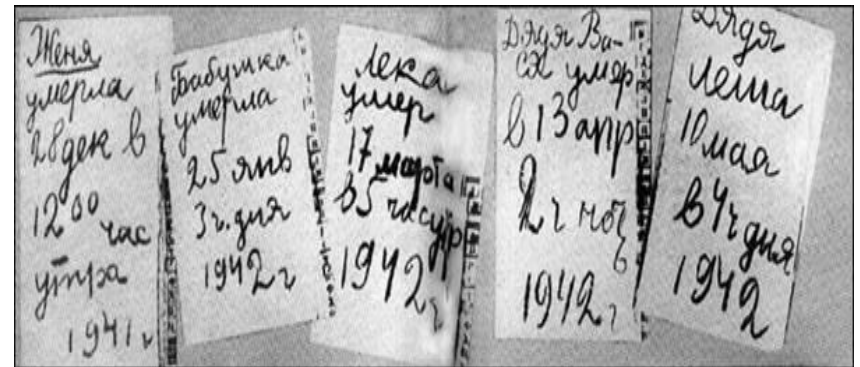 Женя
умерла
28 дек в
12 00 час
утра
1941 г
Бабушка
умерла
25 янв
3 ч. дня
1942 г
Лека
умер
17 марта
в 5 час утр
1942 г
Дядя Ва-
ся умер
в 13 апр
2 ч ноч
ь
1942 г
Дядя
Леша
10 мая
в 4 ч дня
1942